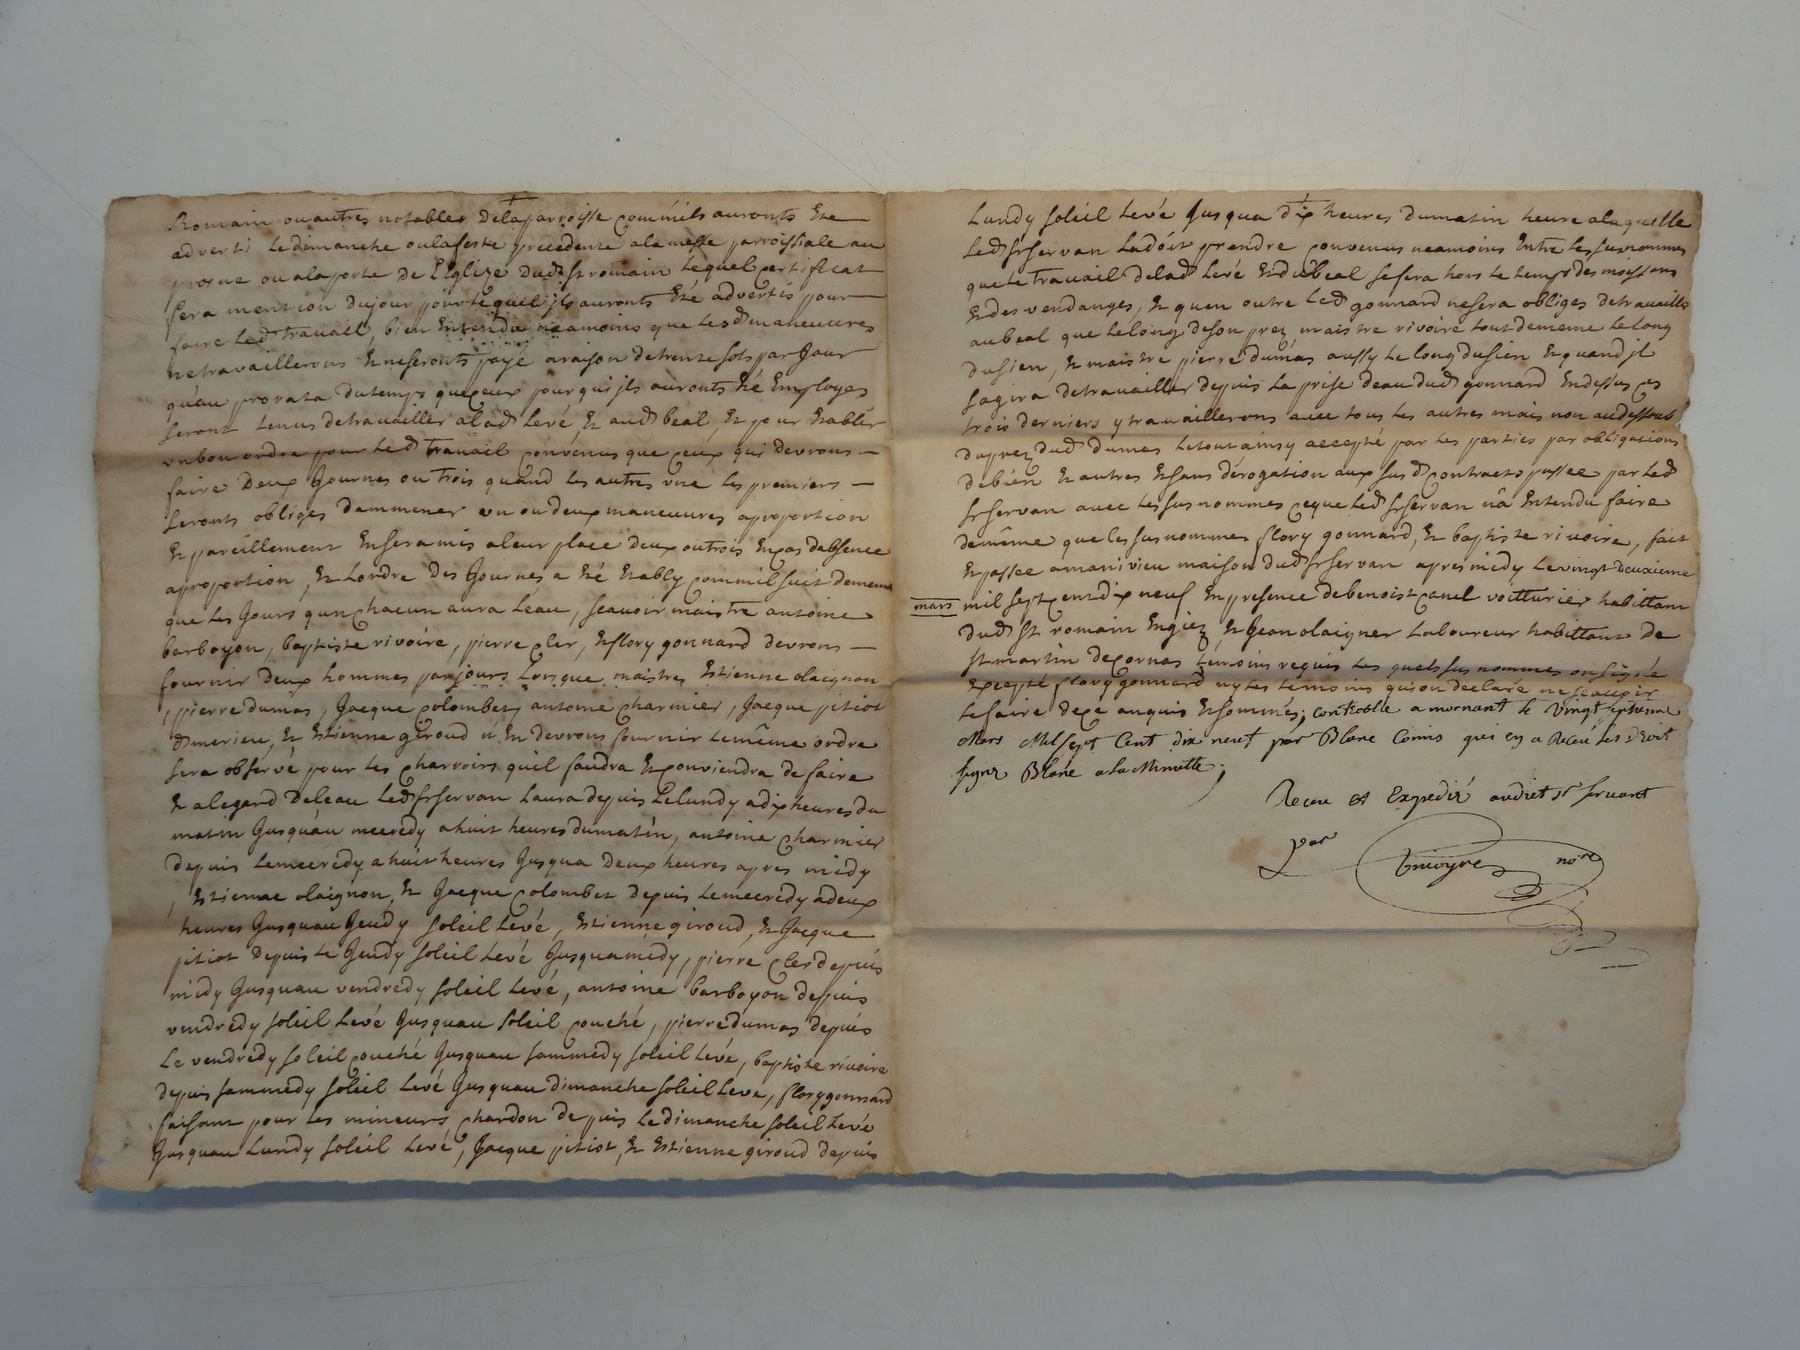 Romain ou autres notables dela parroisse comm'ils auronts Ete
adverti ledimanche oulafeste precedente ala messe parroissiale au
prosne ou alaporte de L'Eglize dud St romain lequel certificat
fera mention dujour pour lequel jls auronts Eté advertis pour
faire led travail, bien Entendu neamoins que lesd maneuures
netravaillerons Et neseronts payé araison detrente sols par Jour
qu'au prorata dutemps queceux pour qui jls auronts Eté Employes
seront tenus detravailler alad levé, Et aud beal, Et pour Etablir
unbon ordre pour led travail convenus que ceux qui devrons
faire deux Journes ou trois quand les autres une les premiers
seronts obligés dammener un ou deux maneuures aproportion
Et pareillement Ensera mis a leur place deux outrois Encas dabsence
aproportion, Et Lordre des Journes a Eté Etably comm'il suit dememe
que les Jours qunchacun aura leau, scauoir maistre antoine
barboyon, baptiste rivoire, pierre cler, Et flory gonnard devrons
fournir deux hommes par jours lorsque maistres Estienne olaignon
, pierre dumas, Jacque colombet, antoine charmier, Jacque pitiot
dmerieu, Et Estienne giroud n'En devrons fournir lemême ordre
sera observé pour les charrois quil faudra Et conviendra de faire
Et alegard Deleau led sr servan Laura depuis Lelundy adix heures du
matin Jusqu'au mecredy ahuit heures dumatin, antoine charmier
depuis lemecredy ahuit heures Jusqua deux heures apres midy
, Estienne olaignon, Et Jacque colombet depuis lemecredy adeux
heures Jusquau Jeudy soleil Levé, Estienne giroud, Et Jacque
pitiot depuis le Jeudy soleil Levé Jusquamidy, pierre cler depuis
midy Jusquau vendredy soleil Levé, antoine barboyon depuis
vendredy soleil Levé Jusquau soleil couché, pierre dumas depuis
Le vendredy soleil couché Jusquau sammedy soleil Levé, baptiste rivoire
depuis sammedy soleil Levé Jusquau dimanche soleil Leve, flory gonnard
faisant pour les mineurs chardon depuis ledimanche soleil Levé
Jusquau Lundy soleil Levé, Jacque pitiot, Et Estienne giroud depuis
Lundy soleil Levé Jusqua dix heures dumatin heure alaquelle
led sr servan Ladoit prendre convenus neamoins Entre les susnommes
que le travail delad Levé Et dubeal sefera hors le temps des moissons
Et des vendanges, Et quen outre led gonnard nesera obliges detravailler
aubeal que lelong deson prez maistre rivoire tout dememe lelong
dusien, Et maistre pierre dumas aussy lelong dusien Et quand jl
sagira detravailler depuis la prise deau dud gonnard Endessus ces
trois derniers y travaillerons avec tous les autres mais non audessoub
duprez dud dumas letout ainsy accepté par les parties par obligations
debien Et autres Et sans dérogation aux susd contracts passee par led
sr servan avec les susnommes ceque led sr servan n'a Entendu faire
demême que les susnommes flory gonnard, Et baptiste rivoire, fait
Et passee amanivieu maison dud sr servan apresmidy levingt deuxieme
mars mil sept cent dix neuf En presence debenoist canel voitturier habittant
dud St romain Engiez, Et Jean olaigner Laboureur habittant de
St martin decornas temoins requis les quels susnommes onsigné
Excepté flory gonnard nyles temoins quion declaré nescauoir
lefaire dece anquis Et sommés; controlle a mornant le vingt septieme
Mars Mil sept Cent dix neuf par Blanc Comis qui en a Receu les droit
signe Blanc a la Minutte;
Receu et Expedié audict sr servant
par
nore